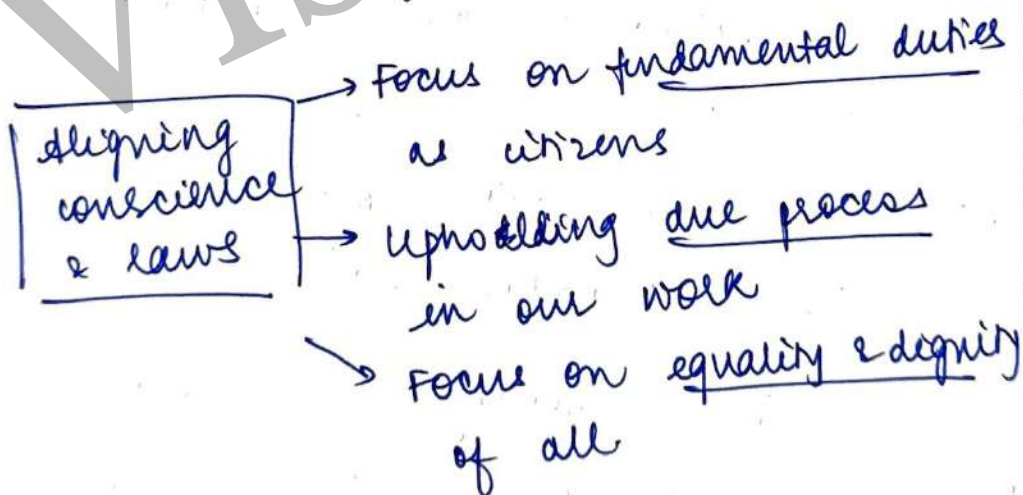 Aligning
conscience
& laws
→ Focus on fundamental duties
as citizens
→ Upholding due process
in our work
→ Focus on equality & dignity
of all